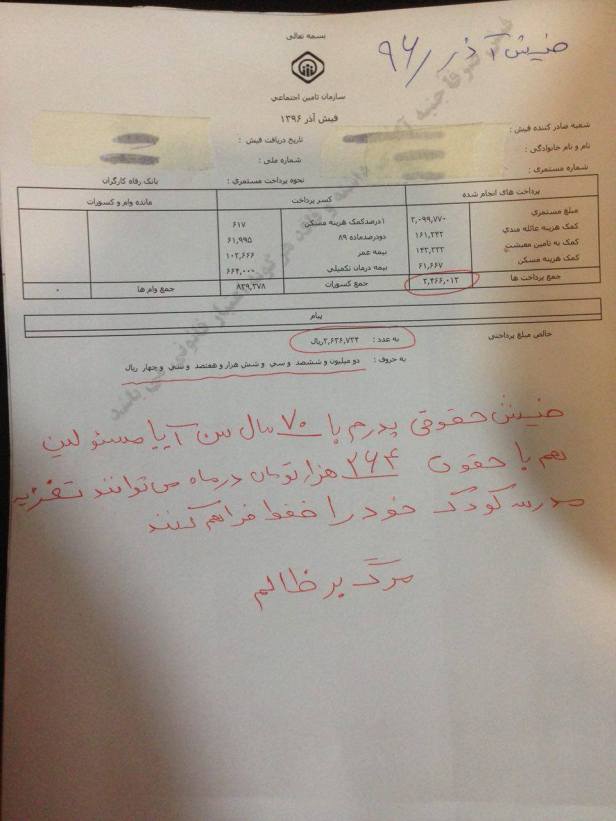 فیش آذر ۹۶
بسمه تعالی
سازمان تامین اجتماعی
فیش آذر ۱۳۹۶
شعبه صادر کننده فیش :
تاریخ دریافت فیش :
نام و نام خانوادگی :
شماره ملی :
شماره مستمری :
نحوه پرداخت مستمری : بانک رفاه کارگران
پرداخت های انجام شده کسر پرداخت مانده وام و کسورات
مبلغ مستمری ۳,۰۹۹,۷۷۰ ۱درصدکمک هزینه مسکن ۶۱۷
کمک هزینه عائله مندی ۱۶۱,۲۴۲ دودرصدماده ۸۹ ۶۱,۹۹۵
کمک به تامین معیشت ۱۴۳,۳۳۳ بیمه عمر ۱۰۲,۶۶۶
کمک هزینه مسکن ۶۱,۶۶۷ بیمه درمان تکمیلی ۶۶۴,۰۰۰
جمع پرداخت ها ۳,۴۶۶,۰۱۲ جمع کسورات ۸۲۹,۲۷۸ جمع وام ها ۰
پیام
خالص مبلغ پرداختی به عدد : ۲,۶۳۶,۷۳۴ریال
به حروف : دو میلیون و ششصد و سی و شش هزار و هفتصد و سی و چهار ریال
فیش حقوقی پدرم با ۷۰ سال سن آیا مسئولین
هم با حقوق ۲۶۴ هزار تومان در ماه می توانند تغذیه
مدرسه کودک خود را فقط فراهم کنند
مرگ بر ظالم